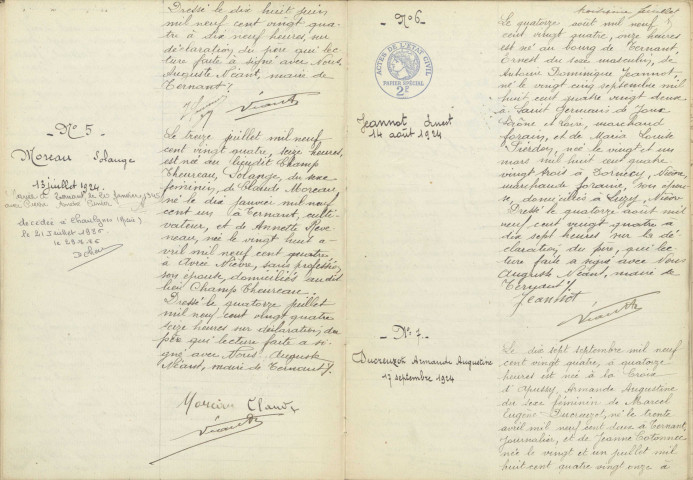 Dressé le dix huit juin
mil neuf cent vingt qua
tre à dix neuf heures, sur
déclaration du père qui lec
ture faite a signé avec Nous
Auguste Néant, maire de
Ternant.
Néant
- N° 5 -
Moreau Solange
13 juillet 1924
Mariée à Ternant le 20 janvier
avec Pierre
décédée à
le 21 juillet 1986
le 28.7.86
Le treize juillet mil neuf
cent vingt quatre, seize heures,
est née au lieudit Champ
Theureau, Solange, du sexe
féminin, de Claude Moreau
né le dix janvier mil neuf
cent un à Ternant, culti-
vateur, et de Annette
née le vingt huit a-
vril mil neuf cent quatre,
à Nièvre, sans profession,
son épouse, domiciliés au dit
lieu Champ Theureau.
Dressé le quatorze juillet
mil neuf cent vingt quatre
seize heures sur déclaration du
père qui lecture faite a si-
gné avec Nous Auguste
Néant, maire de Ternant.
Moreau Claude
Néant
- N° 6 -
ACTES DE L'ÉTAT CIVIL
PAPIER SPÉCIAL
2F
Jeannot Ernest
14 août 1924
Le quatorze août mil neuf
cent vingt quatre, onze heures
est né au bourg de Ternant,
Ernest du sexe masculin, de
Antoine Dominique Jeannot,
né le vingt cinq septembre mil
huit cent quatre vingt deux
à Saint Germain de Joux
Saône et Loire, marchand
forain, et de Maria Louise
née le vingt et un
mars mil huit cent quatre
vingt trois à Nièvre
marchande foraine, son épou-
se, domiciliés à Luzy, Nièvre
Dressé le quatorze août mil
neuf cent vingt quatre à
dix sept heures sur la dé-
claration du père, qui lec-
ture faite a signé avec Nous
Auguste Néant, maire de
Ternant.
Jeannot
Néant
- N° 7 -
Ducreuzot Armande Augustine
17 septembre 1924
Le dix sept septembre mil neuf
cent vingt quatre, à quatorze
heures est née à la Croix
Armande Augustine
du sexe féminin de Marcel
Eugène Ducreuzot, né le trente
avril mil neuf cent deux à Ternant,
journalier, et de Jeanne
née le vingt et un juillet mil
huit cent quatre vingt onze à